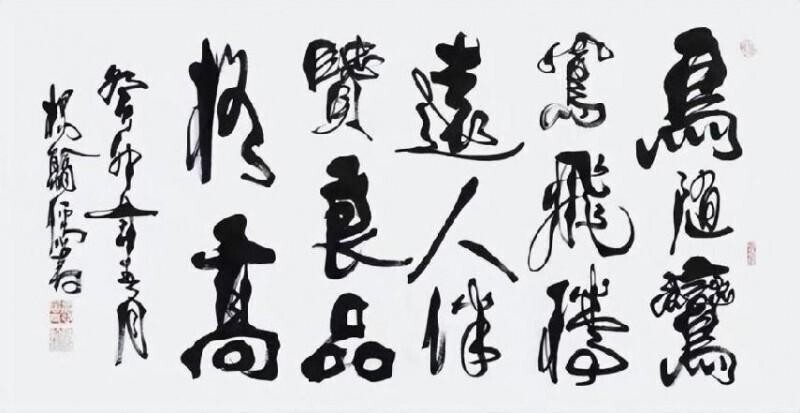 鳥随鸞
鳳飛騰
遠人伴
賢良品
格高
癸卯年春月